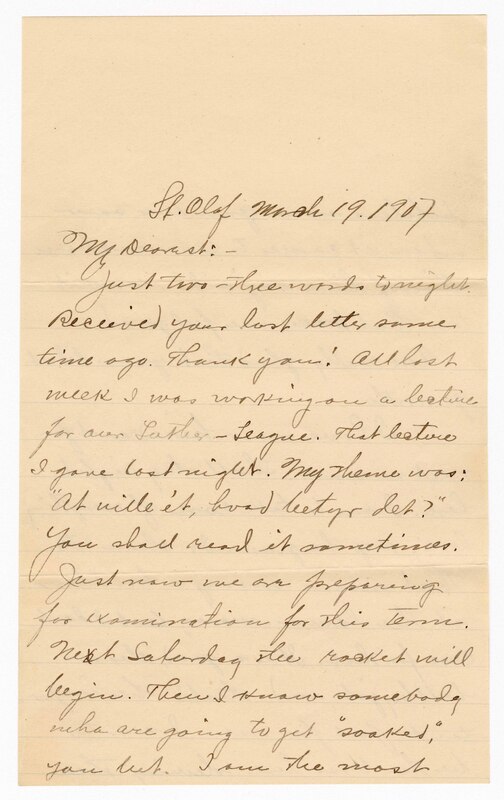 St. Olaf March 19. 1907
My Dearest: -
Just two-three words tonight.
Received your last letter some
time ago. Thank you! All last
week I was working on a lecture
for our Luther-League. That lecture
I gave last night. My theme was:
"At ville ét, hvad betyr det?"
You shall read it sometimes.
Just now we are preparing
for examination for this term.
Next Saturday the racket will
begin. Then I know somebody
who are going to get "soaked",
you bet. I am the most